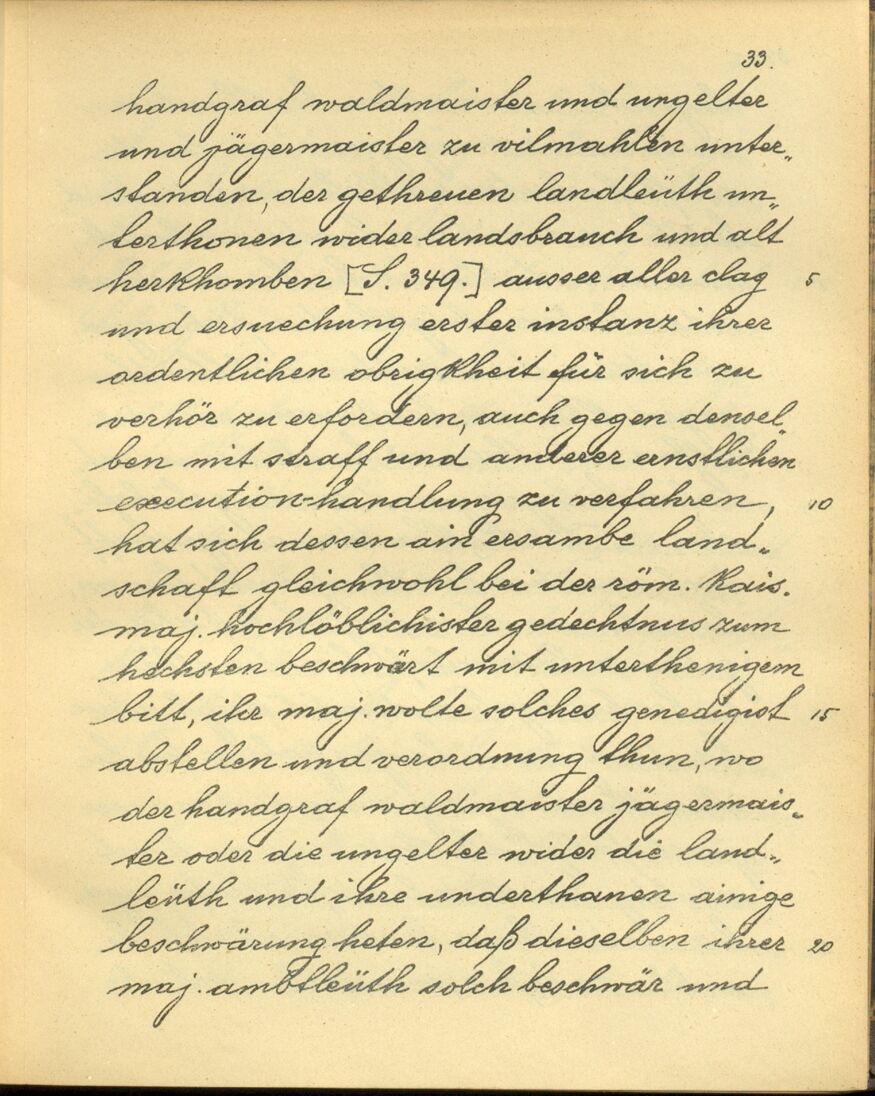 33.
handgraf waldmaister und ungelter
und jägermaister zu vilmahlen unter„
standen, der gethreuen landleüth un„
terthonen wider landsbrauch und alt
herkhomben [S. 349.] ausser aller clag 5
und ersuechung erster instanz ihrer
ordentlichen obrigkheit für sich zu
verhör zu erfordern, auch gegen densel„
ben mit straff und anderer ernstlichen
execution-handlung zu verfahren, 10
hat sich dessen ain ersambe land„
schaft gleichwohl bei der röm. kais.
maj. hochlöblichister gedechtnus zum
hechsten beschwärt mit unterthenigem
bitt, ihr maj. wolte solches genedigist 15
abstellen und verordnung thun, wo
der handgraf waldmaister jägermais„
ter oder die ungelter wider die land„
leüth und ihre underthanen ainige
beschwärung heten, daß dieselben ihrer 20
maj. ambtleüth solch beschwär und